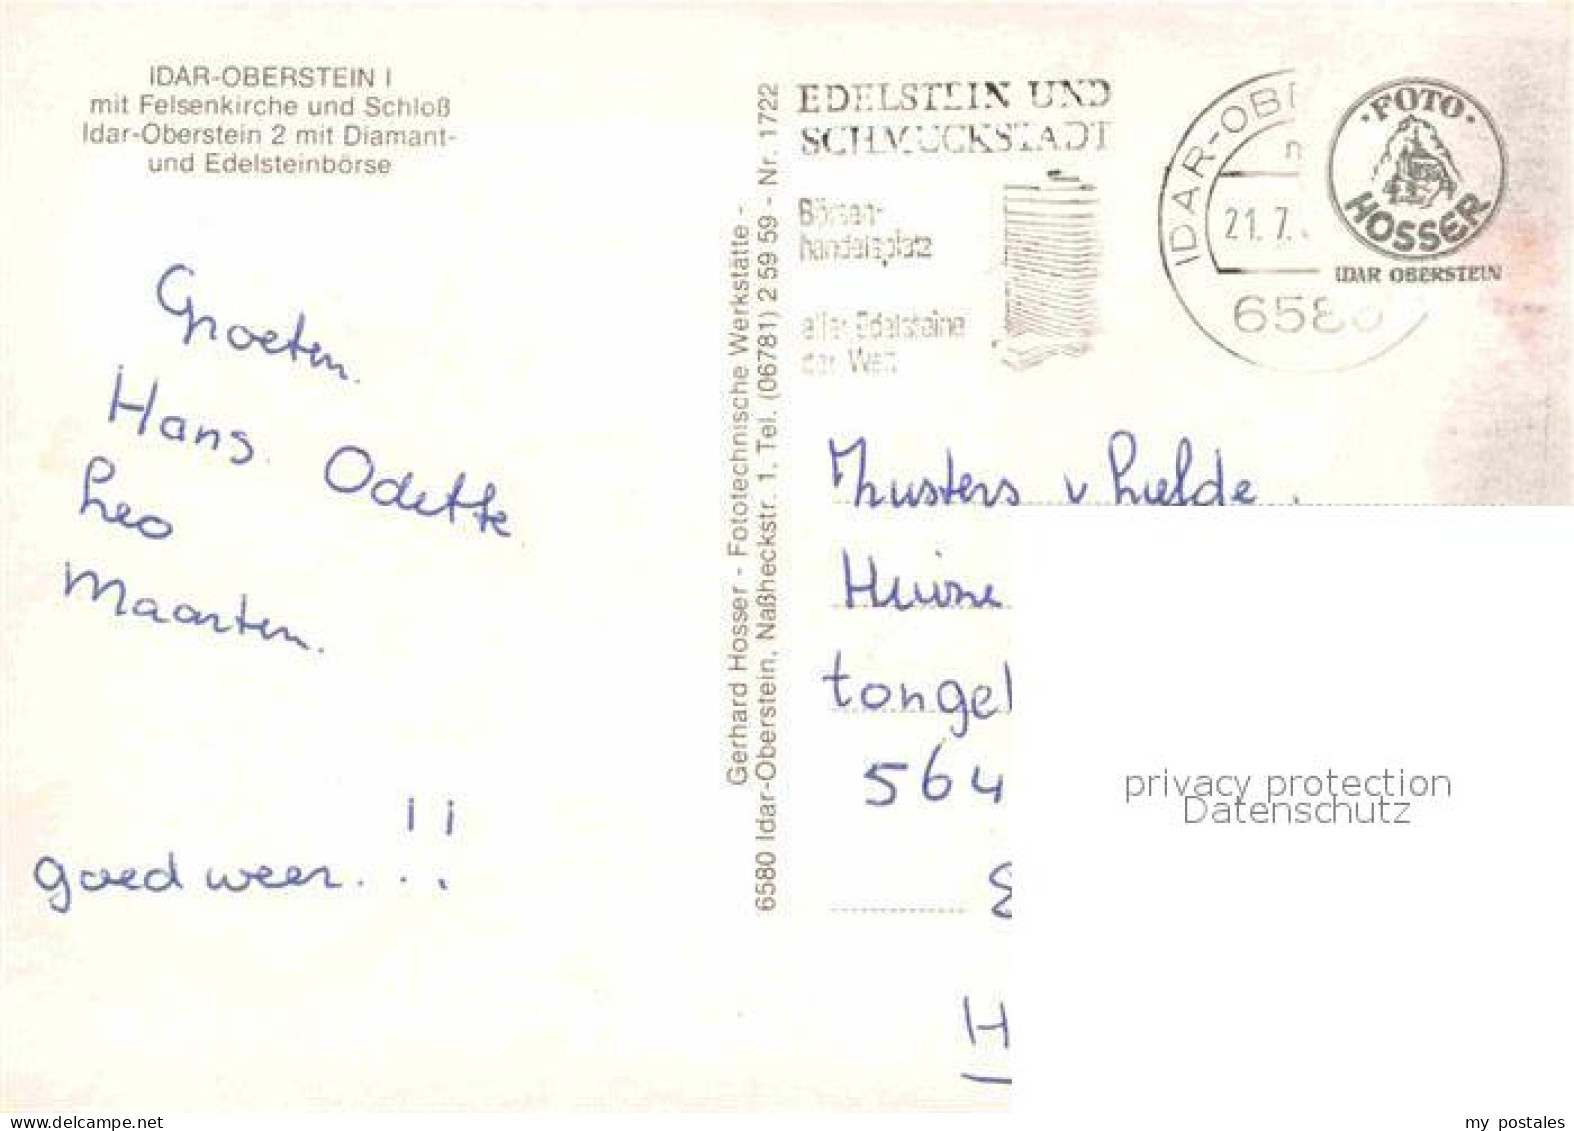 IDAR-OBERSTEIN I
mit Felsenkirche und Schloß
Idar-Oberstein 2 mit Diamant-
und Edelsteinbörse
Groeten.
Hans. Odette
Leo
Maarten.
goed weer...!!
Gerhard Hosser - Fototechnische Werkstätte -
6580 Idar-Oberstein, Naßheckstr. 1, Tel. (06781) 2 59 59 - Nr. 1722
EDELSTEIN UND
SCHMUCKSTADT
Börsen-
handelsplatz
aller Edelsteine
der Welt
IDAR-OBE
21. 7.
6580
·FOTO·
HOSSER
IDAR OBERSTEIN
tongel
564
H
privacy protection
Datenschutz
my postales